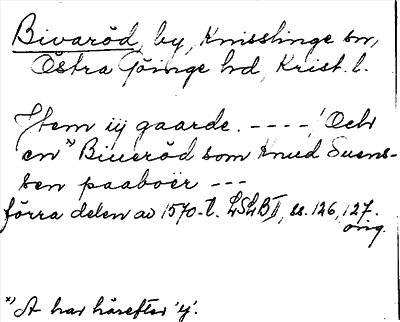 Bivaröd, by, Knisslinge sn,
Östra Göinge hd, Krist. l.
Jtem iij gaarde. - - - -, Och
en *) Biueröd som Knud Suens-
sen paaboer - - -
förra delen av 1570-t. LSLB II, ss. 126, 127.
orig.
*) A har härefter 'y'.